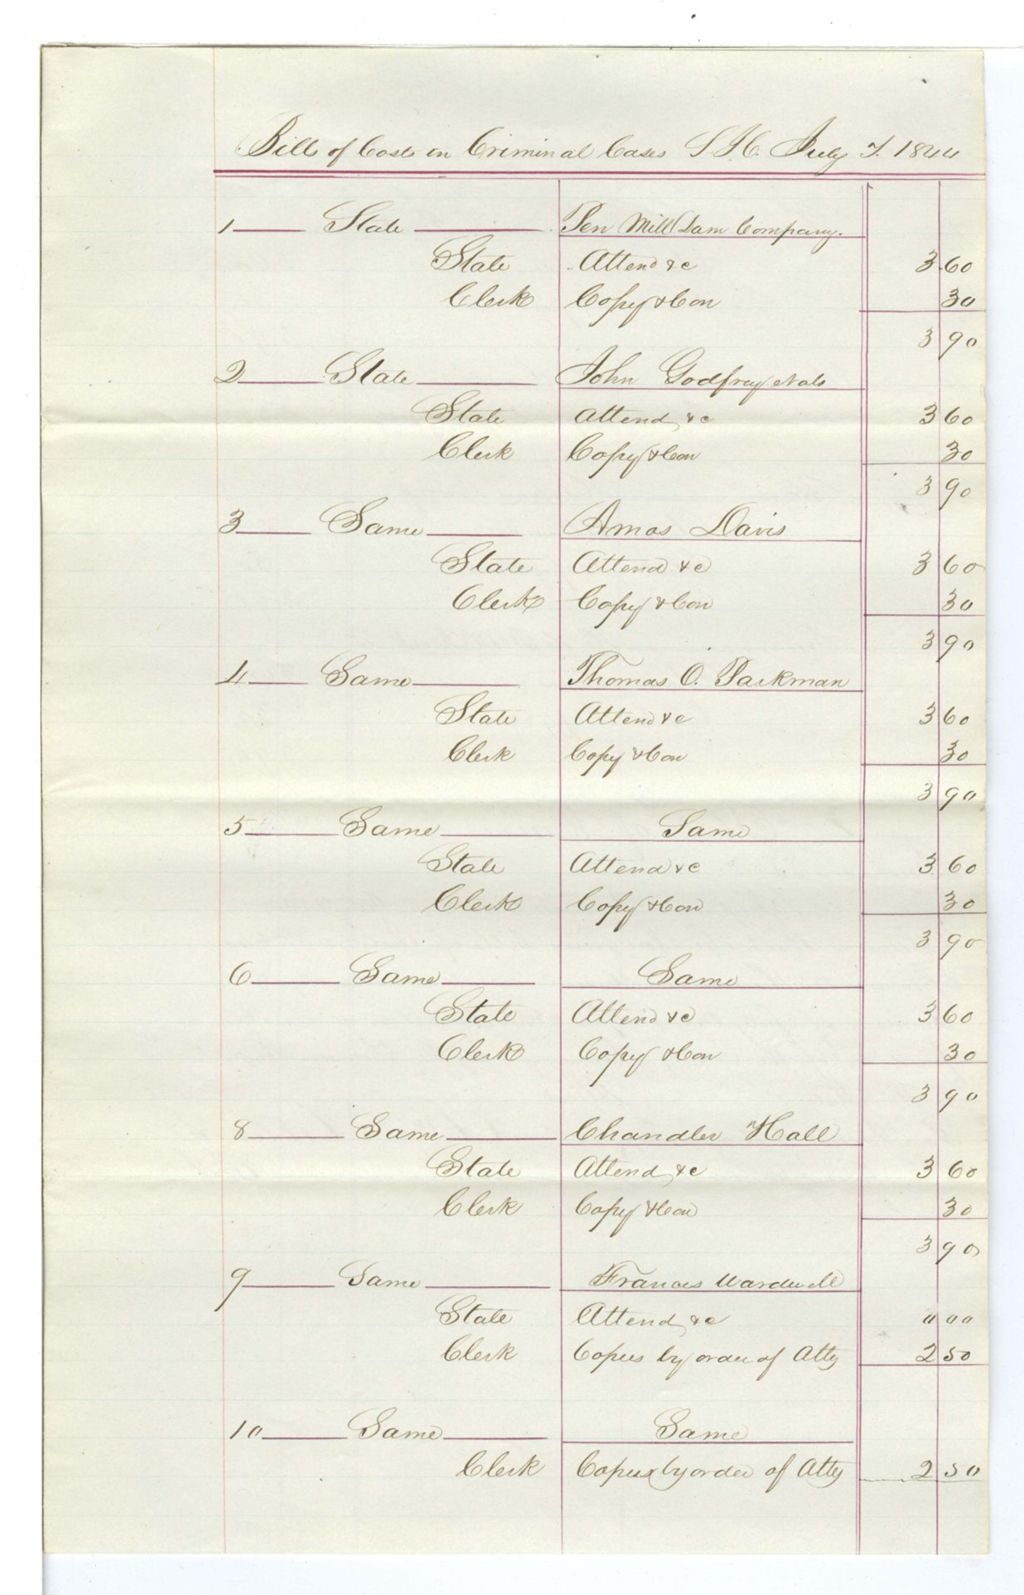 Bill of Costs in Criminal Cases S.J.C. July T. 1844
1 State Pen Mill Dam Company.
State Attend &c 3 60
Clerk Copy & Con 30
3 90
2 State John Godfrey et als
State Attend &c 3 60
Clerk Copy & Con 30
3 90
3 Same Amos Davis
State Attend &c 3 60
Clerk Copy & Con 30
3 90
4 Same Thomas O. Parkman
State Attend &c 3 60
Clerk Copy & Con 30
3 90
5 Same Same
State Attend &c 3 60
Clerk Copy & Con 30
3 90
6 Same Same
State Attend &c 3 60
Clerk Copy & Con 30
3 90
8 Same Chandler Hall
State Attend &c 3 60
Clerk Copy & Con 30
3 90
9 Same Francis Wardwell
State Attend &c 0 00
Clerk Copies by order of Atty 2 50
10 Same Same
Clerk Copies by order of Atty 2 50